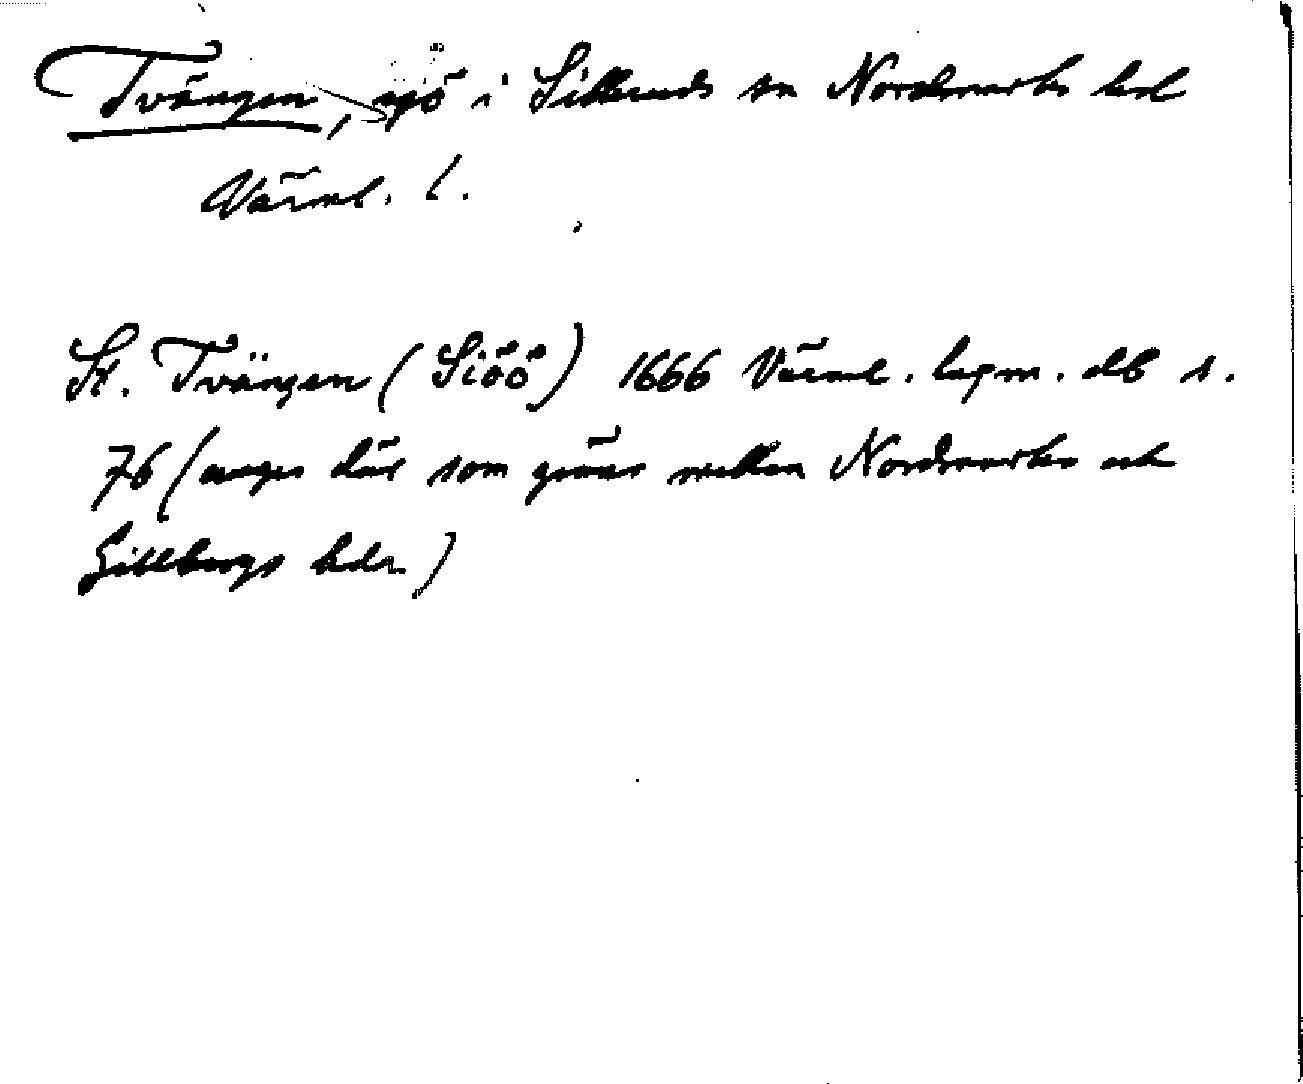 Tvängen, sjö i Silleruds sn Nordmarks hd
Värml. l.
St. Tvängen (Siöö) 1666 Värml. lagm. db s.
76 (anges där som gräns mellan Nordmarks och
Gillbergs hdr)